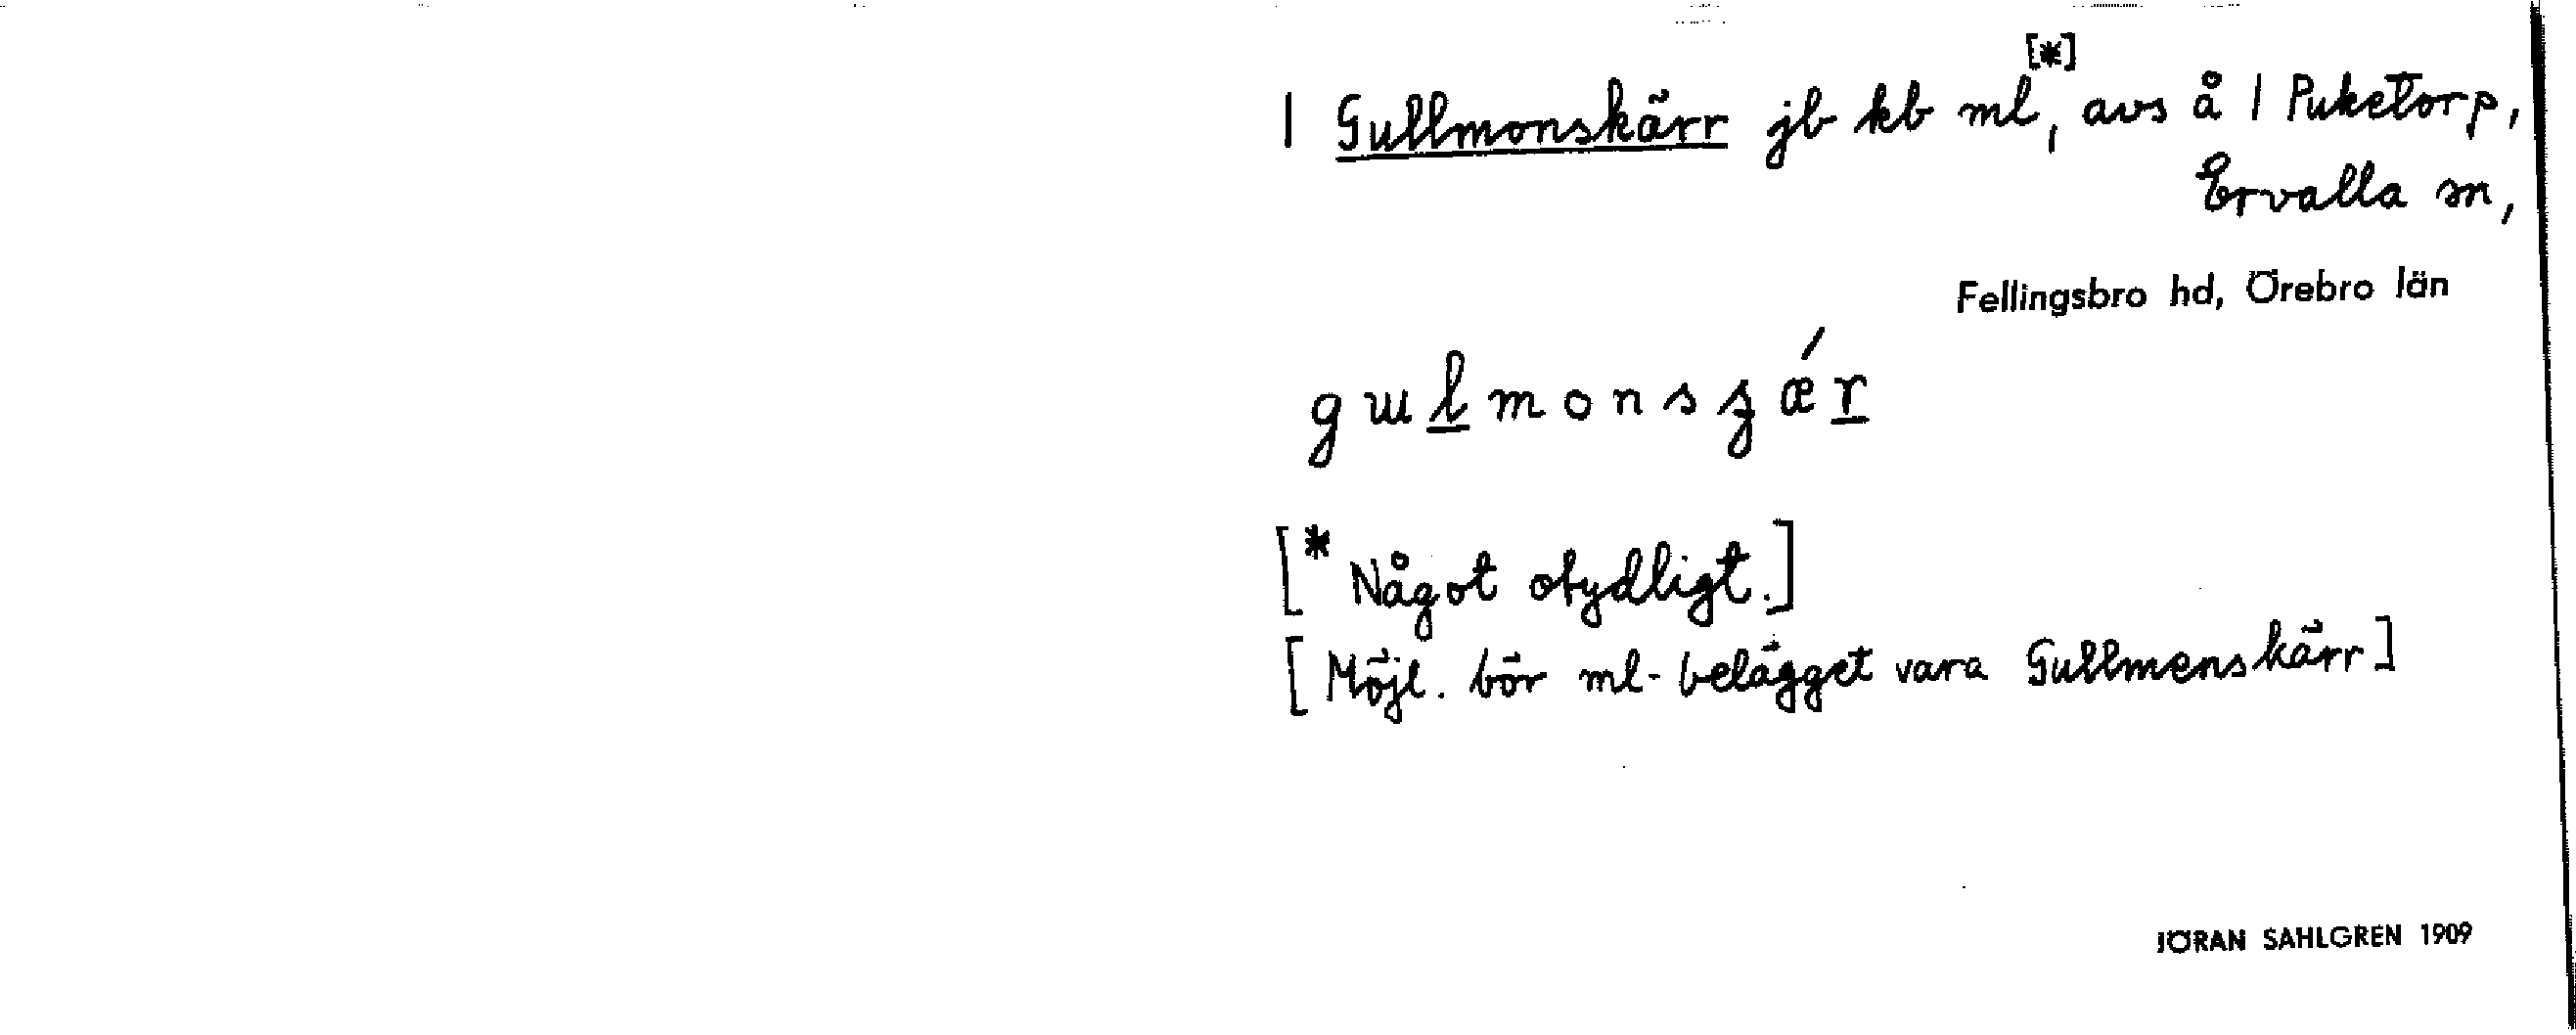 | Gullmonskärr jb kb ml[*], avs å | Puketorp,
Ervalla sn,
Fellingsbro hd, Örebro län
gɯl̲monsʒǽr̲
[* Något otydligt.]
[Möjl. bör ml-belägget vara Gullmenskärr]
JÖRAN SAHLGREN 1909